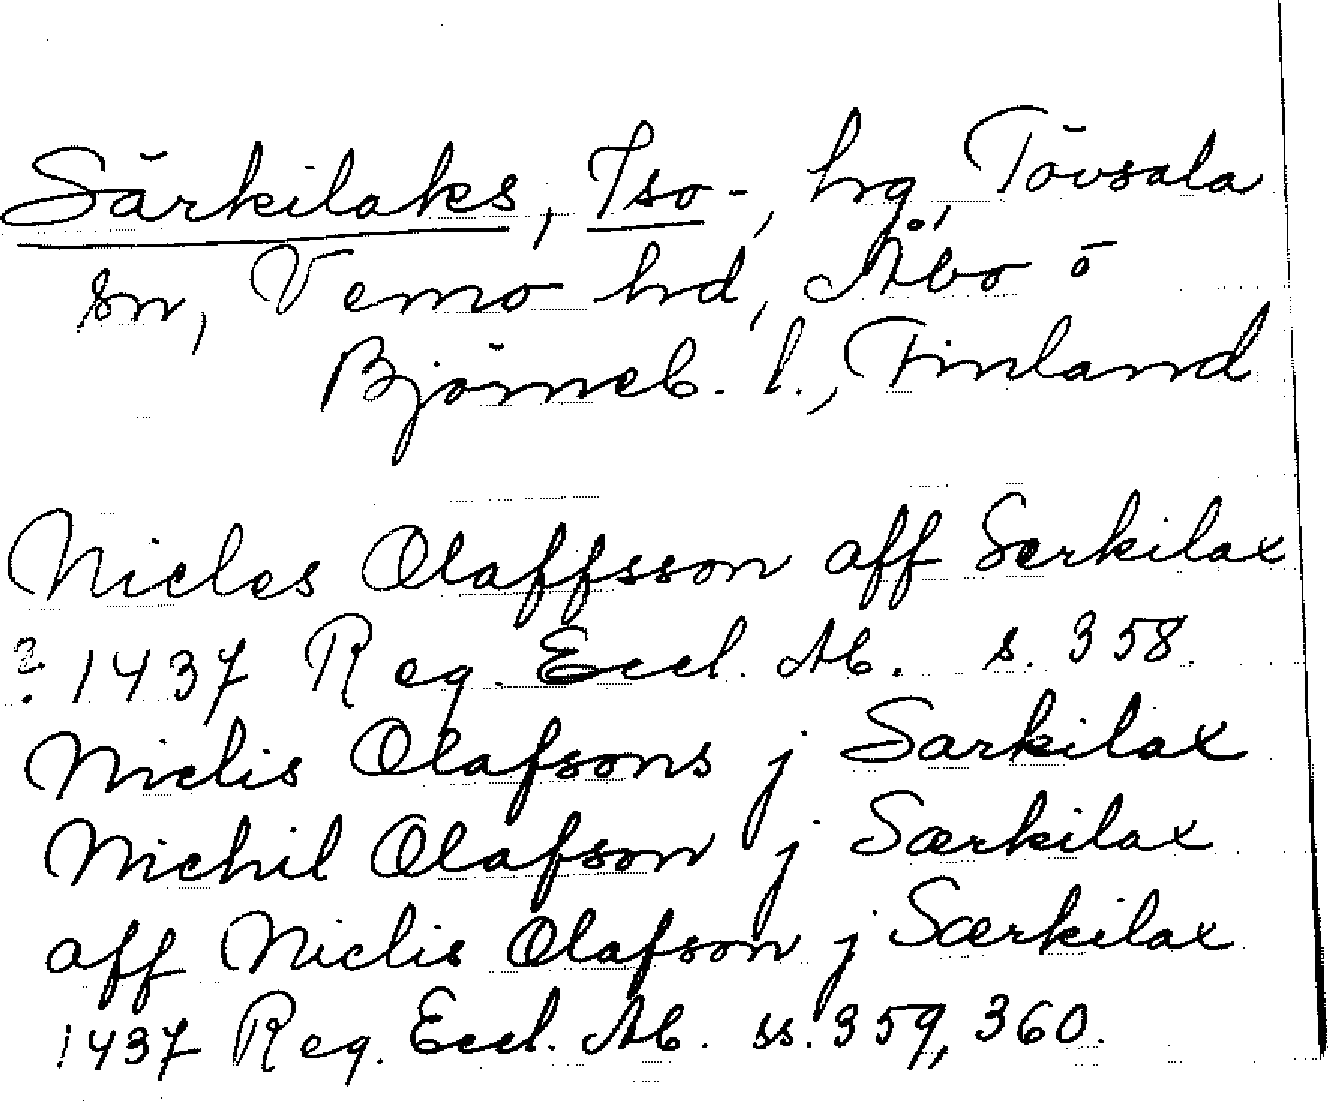 Särkilaks, Iso-, hrg, Tövsala
sn, Vemo hrd, Åbo o
Björneb. l., Finland
Niclas Olaffsson aff Særkilax
? 1437 Reg. Eccl. Ab. s. 358.
Niclis Olafsons j Sarkilax
Nichil Olafson j Særkilax
aff Niclis Olafson j Særkilax
1437 Reg. Eccl. Ab. ss. 359, 360.